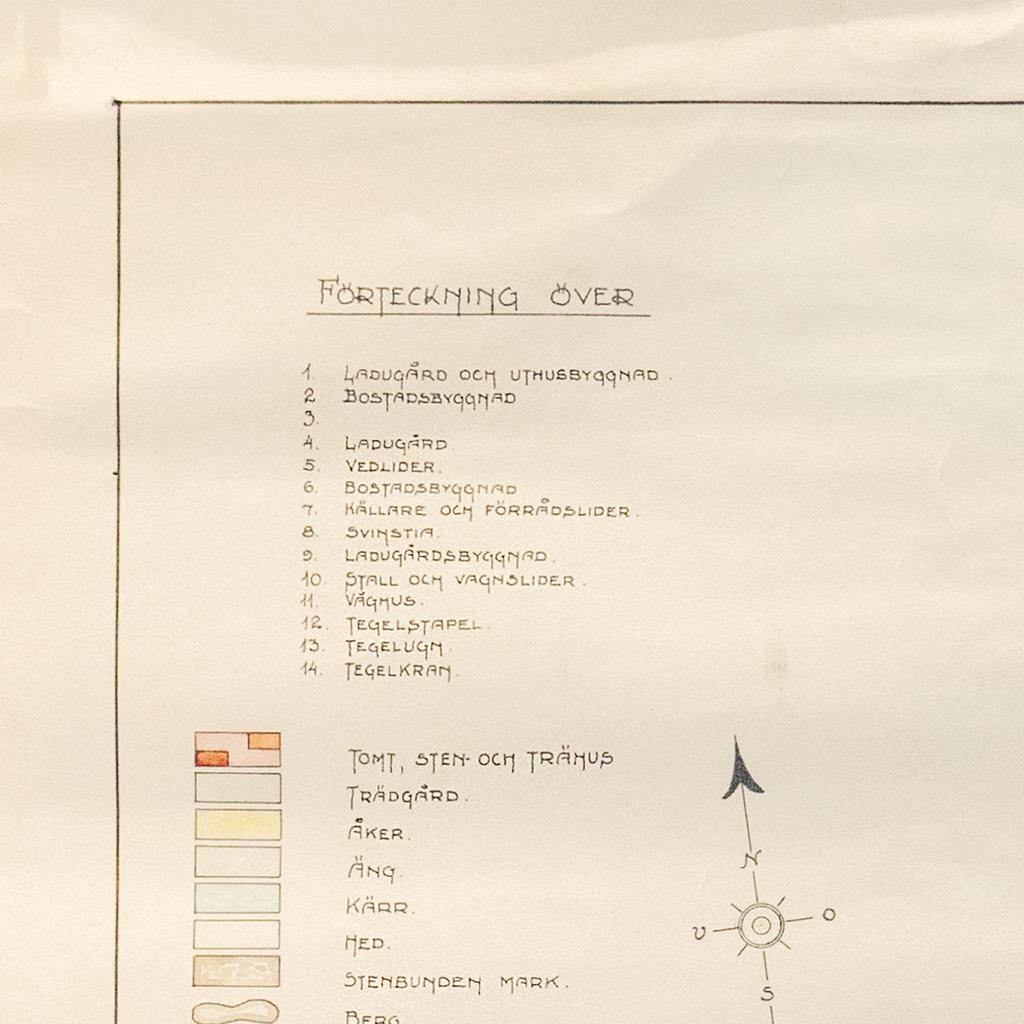 FÖRTECKNING ÖVER
1. LADUGÅRD OCH UTHUSBYGGNAD.
2 BOSTADSBYGGNAD
3.
4. LADUGÅRD
5. VEDLIDER.
6. BOSTADSBYGGNAD
7. KÄLLARE OCH FÖRRÅDSLIDER.
8. SVINSTIA.
9. LADUGÅRDSBYGGNAD.
10. STALL OCH VAGNSLIDER.
11. VÅGHUS.
12. TEGELSTAPEL.
13. TEGELUGN.
14. TEGELKRAN.
TOMT, STEN- OCH TRÄHUS
TRÄDGÅRD.
ÅKER.
ÄNG.
KÄRR.
HED.
STENBUNDEN MARK.
BERG
N
V O
S